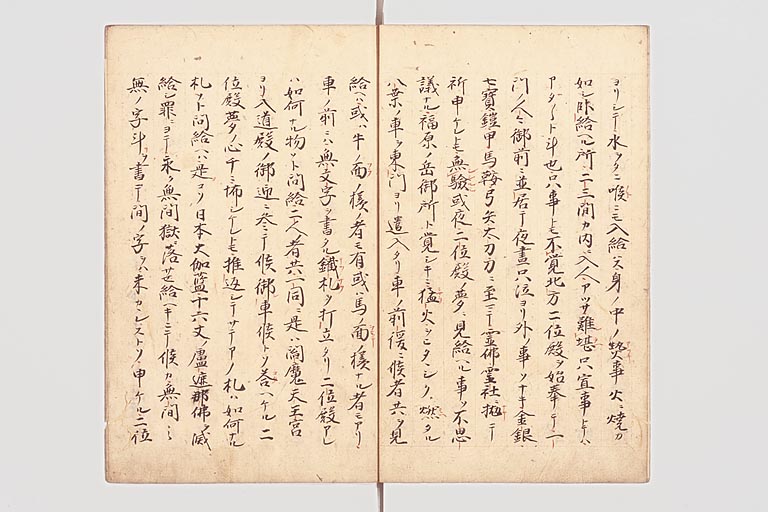 ヨリシテ水ヲタニ喉ニモ入給ハス身ノ中ノ熱事火ニ焼カ
如シ臥給ヘル所二三間カ内ニ入人アツサ難堪只宜事トテハ
アタ〳〵ト斗也只事トモ不覚北方二位殿ヲ始奉テ一
門ノ人々御前ニ並居テ夜晝只泣ヨリ外ノ事ソナキ金銀
七寳鎧甲馬鞍弓矢太刀刀ニ至マテ霊佛霊社ニ抛テ
祈申ケレトモ無驗或夜二位殿ノ夢ニ見給ヘル事ソ不思
議ナル福原ノ岳御所ト覚シキニ猛火ヲヒタヽシク燃タル
八葉ノ車ヲ東門ヨリ遣入タリ車ノ前後ニ候者共ヲ見
給ヘハ或ハ牛ノ面ノ様ノ者モ有或ハ馬ノ面ノ様ナル者モアリ
車ノ前ニハ無文字ヲ書タル鐵札ヲ打立タリ二位殿アレ
ハ如何ナル物ソト問給二人者共一同ニ是ハ閻魔天王宮
ヨリ入道殿ノ御迎ニ参テ候御車候トソ答ヘケル二
位殿夢ノ心チニ怖シケレトモ推返シテサテアノ札ハ如何ナル
札ソト問給ヘハ是コソ日本大伽藍十六丈ノ盧遮那佛ヲ滅
給シ罪ニヨテ永ク無間獄ニ落サセ給ヘキニテ候カ無間ノ
無ノ字斗ヲ書テ間ノ字ヲハ未カヽレストソ申ケル二位